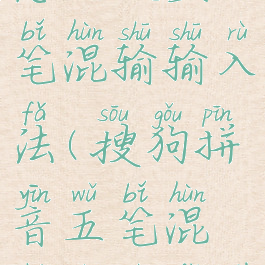 bǐ hùn shū shū rù
笔混输输入
fǎ sōu gǒu pīn
法(搜狗拼
yīn wǔ bǐ hùn
音五笔混